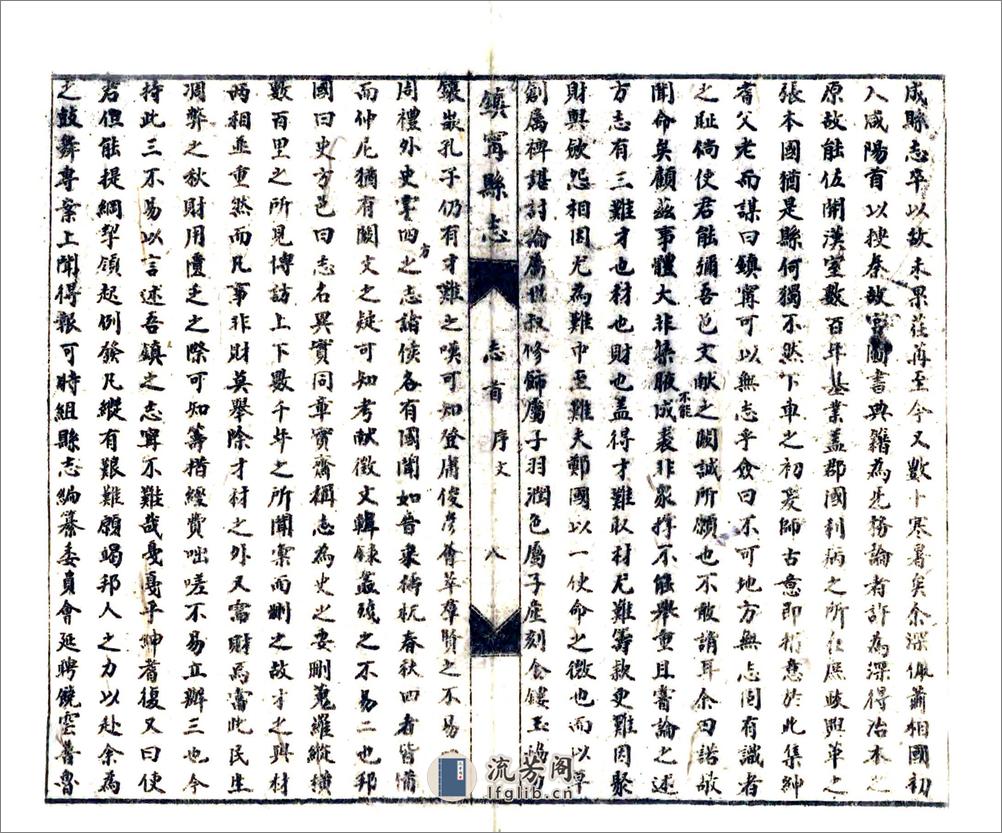 成縣志卒以故未果荏苒至今又數十寒暑矣余深佩蕭相國初
入咸陽首以搜秦故宮圖書典籍為先務論者許為深得治本之
原故能佐開漢室數百年基業蓋郡國利病之所在庶政興革之
張本國猶是縣何獨不然下車之初爰師古意即措意於此集紳
耆父老而謀曰鎮寧可以無志乎僉曰不可地方無志固有識者
之恥倘使君能彌吾邑文献之闕誠所願也不敢請耳余曰諾敬
聞命矣顧茲事體大非集腋不能成裘非眾擎不能舉重且嘗論之述
方志有三難才也材也財也盖得才難取材尤難籌款更難因聚
財興斂怨相因尤為難中至難夫鄭國以一使命之微也而以草
創屬裨諶討論屬世叔修飾屬子羽潤色屬子產刻金鏤玉
鎮寧縣志
志首
序文
八
鏤嵌孔子仍有才難之嘆可知登庸俊彥薈萃羣賢之不易
周禮外史掌四方之志諸侯各有國聞如晉乘檮杌春秋四者皆備
而仲尼猶有闕文之疑可知考献徵文輯錄蓋殘之不易二也邦
國曰史方邑曰志名異實同章實齋稱志為史之要刪蒐羅縱橫
數百里之所見傳訪上下數千年之所聞彙而刪之故才之與材
兩相並重然而凡事非財莫舉除才材之外又需財焉當此民生
凋弊之秋財用匱乏之際可知籌措經費咄嗟不易立辦三也今
持此三不易以言述吾鎮之志寧不難哉戞戞乎紳耆復又曰使
君但能提綱挈領起例發凡縱有艱難願竭邦人之力以赴余為
之鼓舞專案上聞得報可時組縣志編纂委員會延聘饒空普魯
流芳阁
lfglib.cn